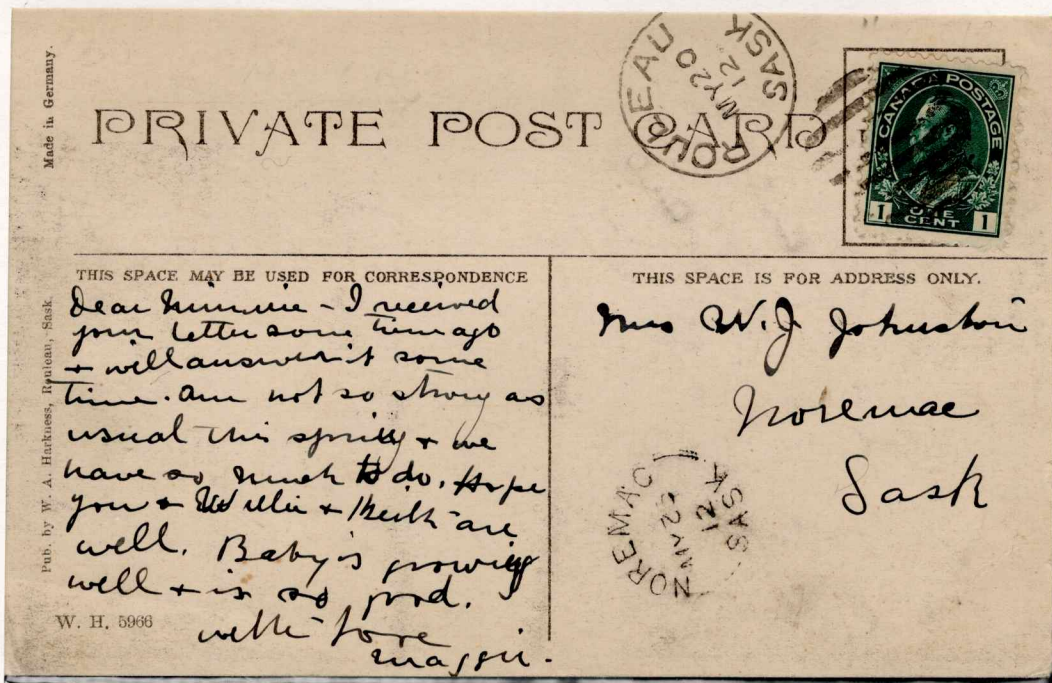 Made in Germany.
PRIVATE POST CARD
ROULEAU
MY 20
12
SASK
CANADA POSTAGE
1 ONE CENT 1
THIS SPACE MAY BE USED FOR CORRESPONDENCE
Dear Minnie - I received
your letter some time ago
+ will answer it some
time. am not so strong as
usual this spring + we
have so much to do. Hope
you + Willie + Keith are
well. Baby is growing
well + is so good.
with love
Maggie.
THIS SPACE IS FOR ADDRESS ONLY.
Mrs W. J. Johnston
Noremac
Sask
NOREMAC
MY
12
SASK
Pub. by W. A. Harkness, Rouleau, Sask.
W. H. 5966